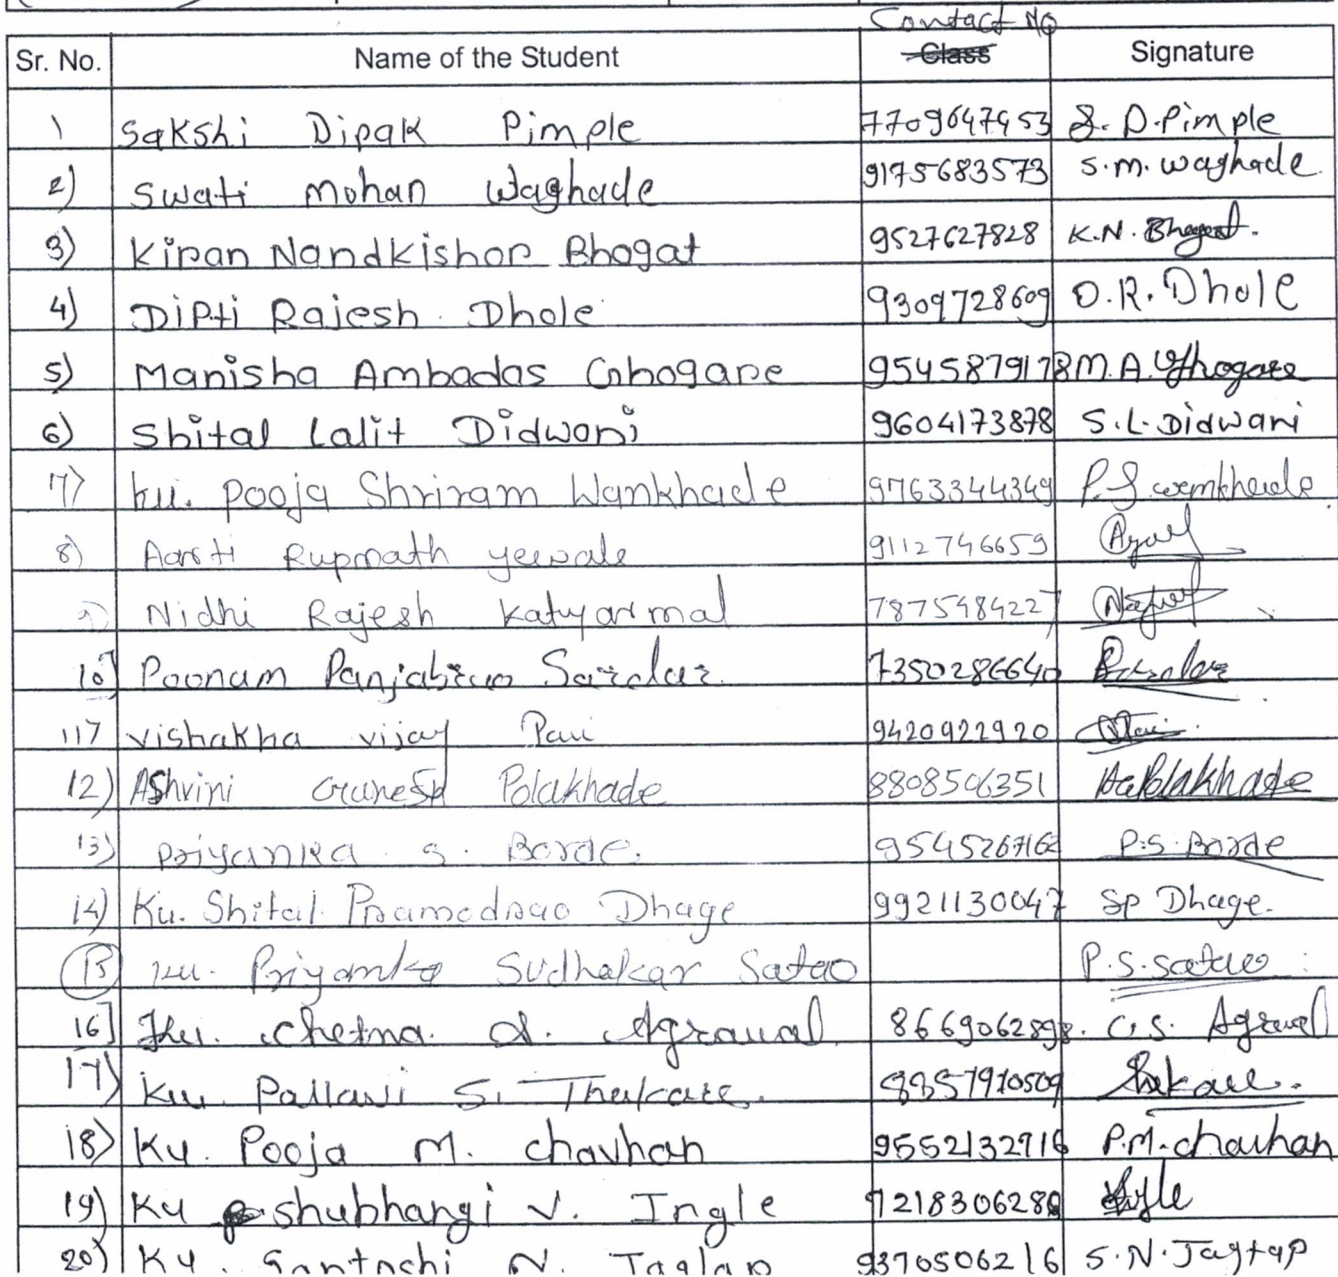 Contact No
Sr. No. Name of the Student Class Signature
1 Sakshi Dipak Pimple 7709647953 S. D. Pimple
2) Swati Mohan Waghade 9175683573 S.M. Waghade
3) Kiran Nandkishor Bhagat 9527627828 K.N. Bhagat.
4) Dipti Rajesh Dhole 9309728609 D.R. Dhole
5) Manisha Ambadas Ghogare 9545879178 M.A. Ghogare
6) Shital Lalit Didwani 9604173878 S.L. Didwani
7) ku. Pooja Shriram Wankhade 9763344349 P.S. wankhade
8) Aarti Rupnath yewale 9112746659
9) Nidhi Rajesh Katyarmal 7875484227
10] Poonam Panjabrao Sardar. 7350286640
11) Vishakha vijay Pari 9420922920
12) Ashvini Ganesh Polakhade 8808506351 Polakhade
13) Priyanka S. Borde. 9545267162 P.S. Borde
14) Ku. Shital Pramodrao Dhage 9921130047 SP Dhage.
15 Ku. Priyanka Sudhakar Satao P.S. Satao
16] Ku. Chetna S. Agrawal 8669062898. C.S. Agrawal
17) Ku. Pallavi S. Thakare.
18) Ku. Pooja M. Chavhan 9552132916 P.M. Chavhan
19) Ku shubhangi V. Ingle 7218306286
20) Ku. N. 9370506216 S.N. Jagtap